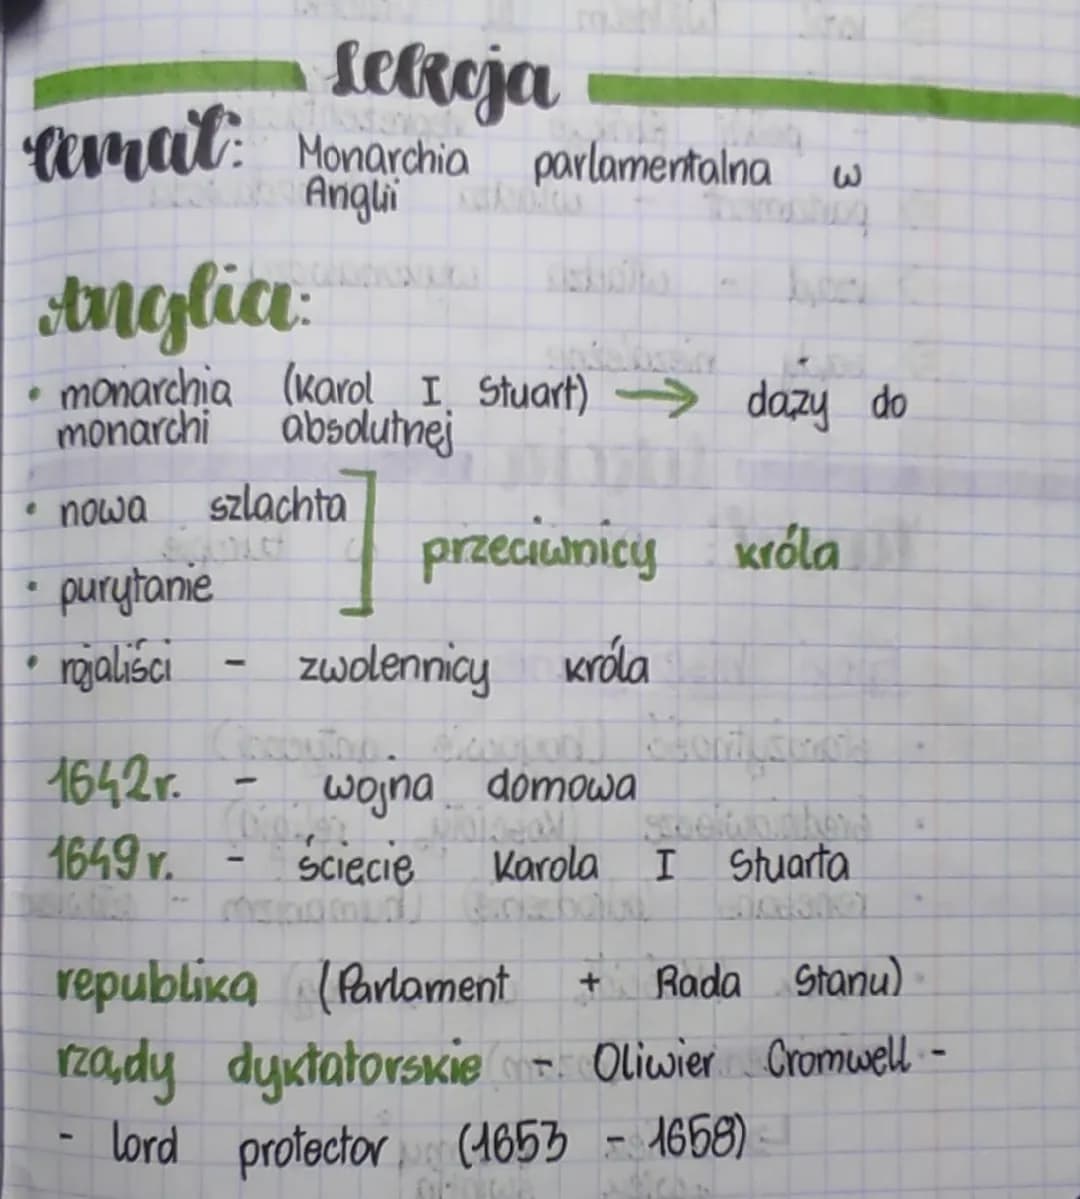 lekcja
temat: Monarchia parlamentalna w
Anglii
Anglia:
• monarchia (Karol I Stuart) → dąży do
monarchi absolutnej
• nowa szlachta
przeciwnicy króla
• purytanie
• rojaliści - zwolennicy króla
1642r. - wojna domowa
1649 r. - ścięcie Karola I Stuarta
republika (Parlament + Rada Stanu)
rządy dyktatorskie - Oliwier Cromwell -
- lord protector (1653 - 1658)